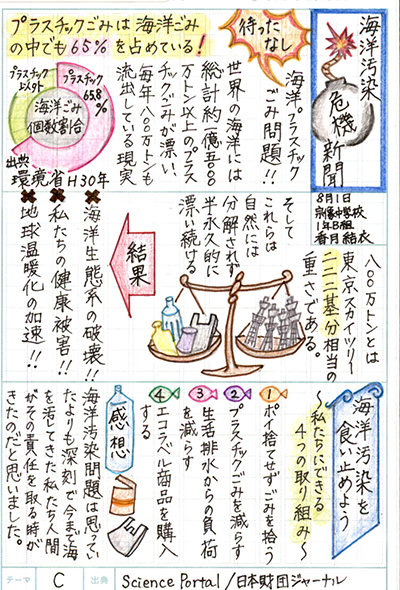 海洋汚染
危機新聞
8月1日
宗像中学校
1年B組
香月結衣
待った
なし
海洋プラスチック
ごみ問題!!
世界の海洋には
総計約一億五〇〇〇
万トン以上のプラス
チックごみが漂い、
毎年八〇〇万トンも
流出している現実
プラスチックごみは海洋ごみ
の中でも65%を占めている!
プラスチック
以外
プラスチック
65.8
%
海洋ごみ
個数割合
出典
環境省H30年
八〇〇万トンとは
東京スカイツリー
二二二基分相当の
重さである。
そして
これらは
自然には
分解されず
半永久的に
漂い続ける
結果
海洋生態系の破壊!!
私たちの健康被害!!
地球温暖化の加速!!
海洋汚染を
食い止めよう
〜私たちにできる
4つの取り組み〜
1 ポイ捨てせずごみを拾う
2 プラスチックごみを減らす
3 生活排水からの負荷
を減らす
4 エコラベル商品を購入
する
感想
海洋汚染問題は思ってい
たよりも深刻で今まで海
を汚してきた私たち人間
がその責任を取る時が
きたのだと思いました。
テーマ C 出典 Science Portal/日本財団ジャーナル